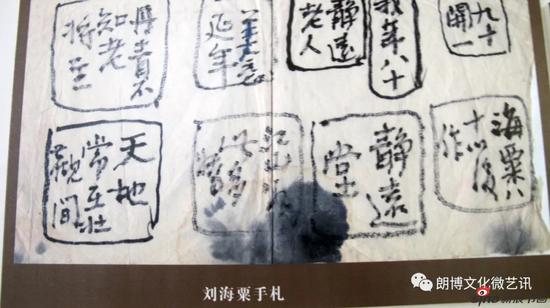 九十
開一
我年八十
静遠
老人
延年
丹青不
知老
將至
海粟八
十以後
作
静遠
堂主
天地
常在壯
觀間
刘海粟手札
朗博文化微艺讯